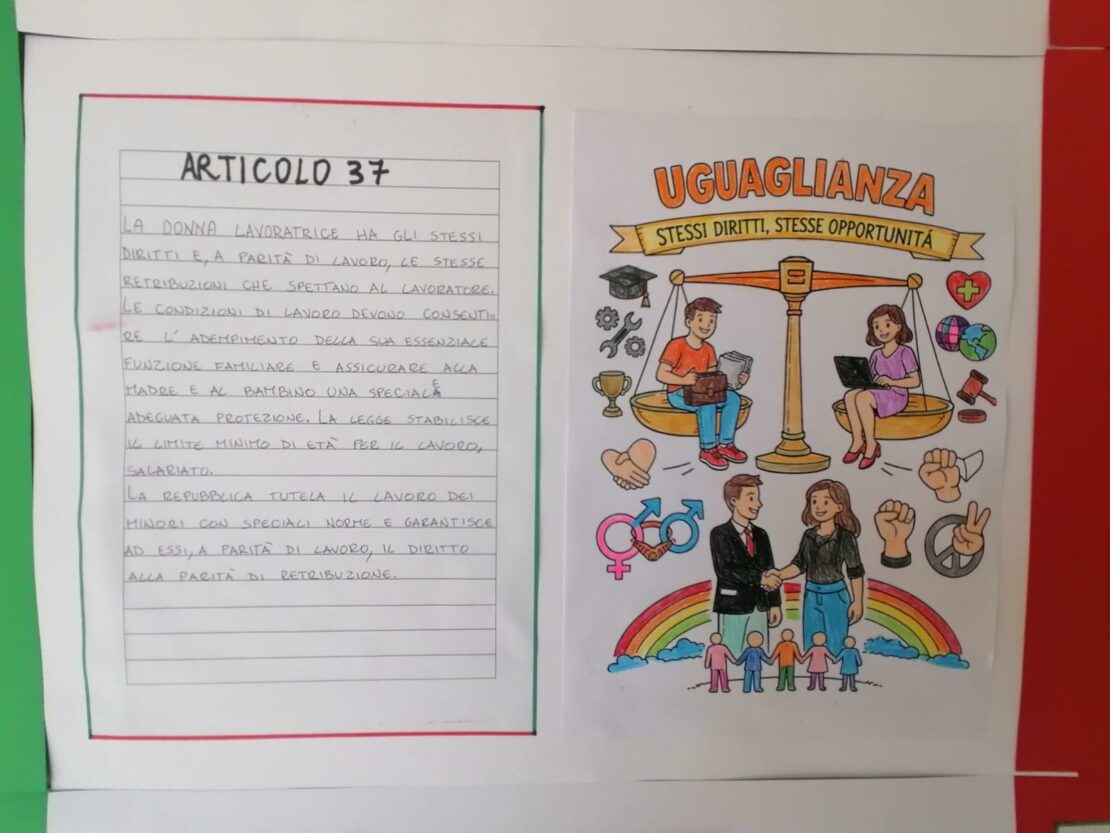 ARTICOLO 37
LA DONNA LAVORATRICE HA GLI STESSI
DIRITTI E, A PARITÀ DI LAVORO, LE STESSE
RETRIBUZIONI CHE SPETTANO AL LAVORATORE.
LE CONDIZIONI DI LAVORO DEVONO CONSENTI-
RE L'ADEMPIMENTO DELLA SUA ESSENZIALE
FUNZIONE FAMILIARE E ASSICURARE ALLA
MADRE E AL BAMBINO UNA SPECIALE
ADEGUATA PROTEZIONE. LA LEGGE STABILISCE
IL LIMITE MINIMO DI ETÀ PER IL LAVORO,
SALARIATO.
LA REPUBBLICA TUTELA IL LAVORO DEI
MINORI CON SPECIALI NORME E GARANTISCE
AD ESSI, A PARITÀ DI LAVORO, IL DIRITTO
ALLA PARITÀ DI RETRIBUZIONE.
UGUAGLIANZA
STESSI DIRITTI, STESSE OPPORTUNITÁ